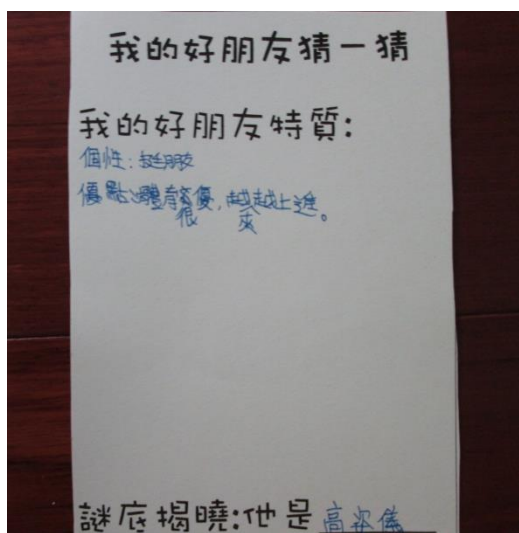 我的好朋友猜一猜
我的好朋友特質:
個性:
優點:體育很優,越來越上進。
謎底揭曉:他是高姿儀